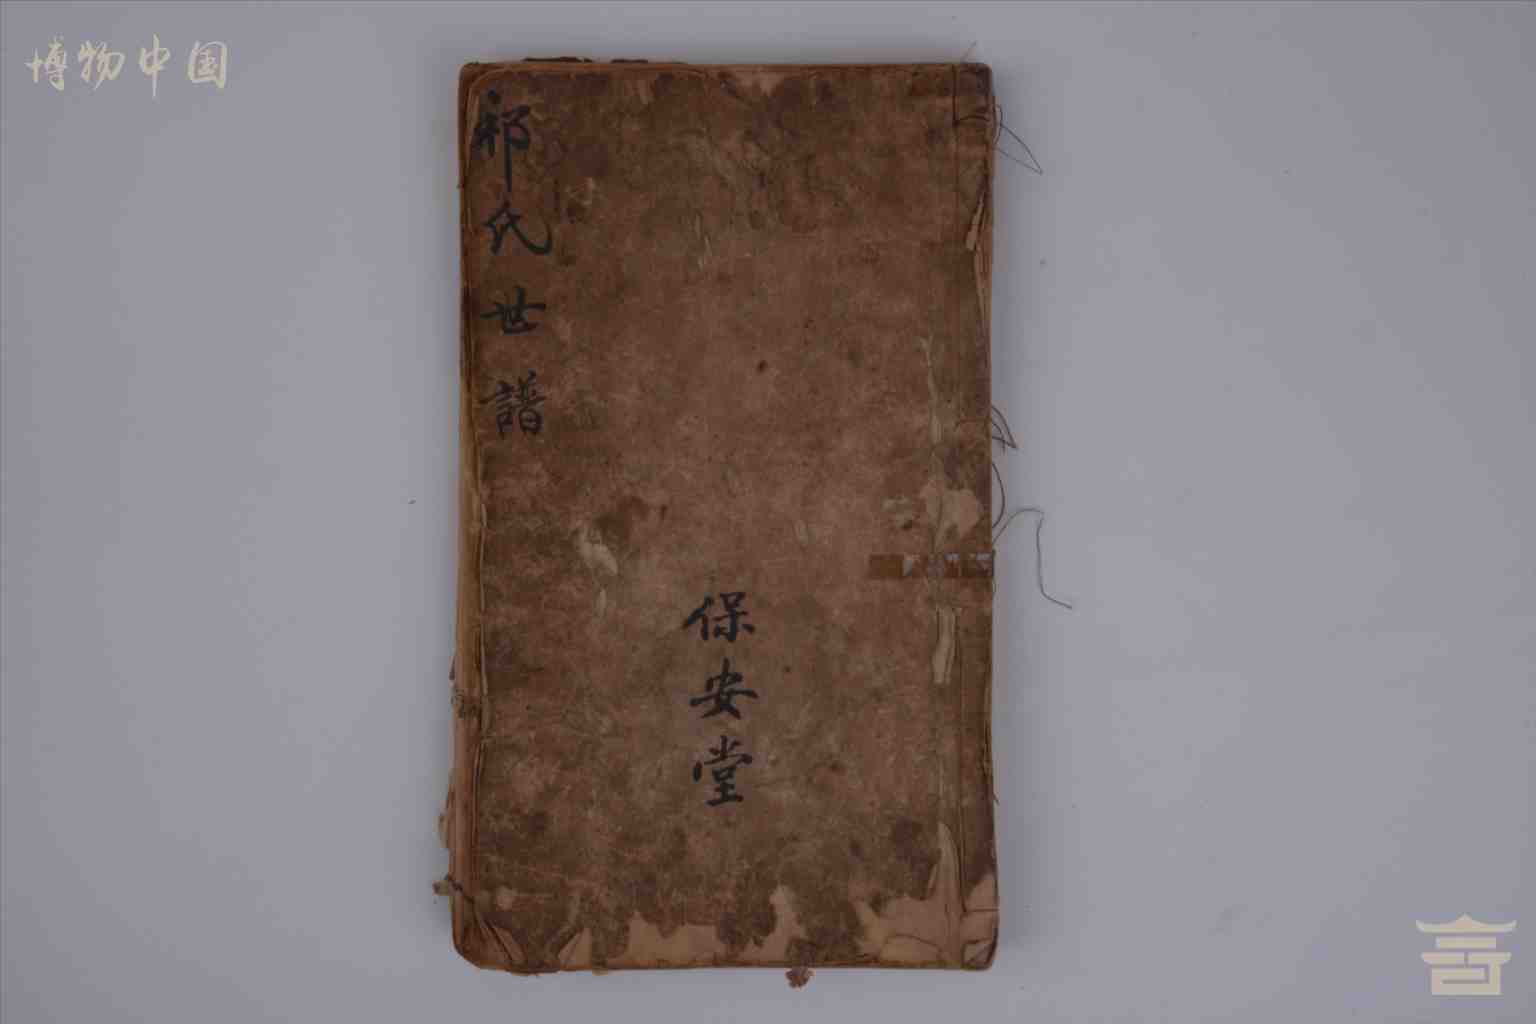 博物中国
祁氏世譜
保安堂